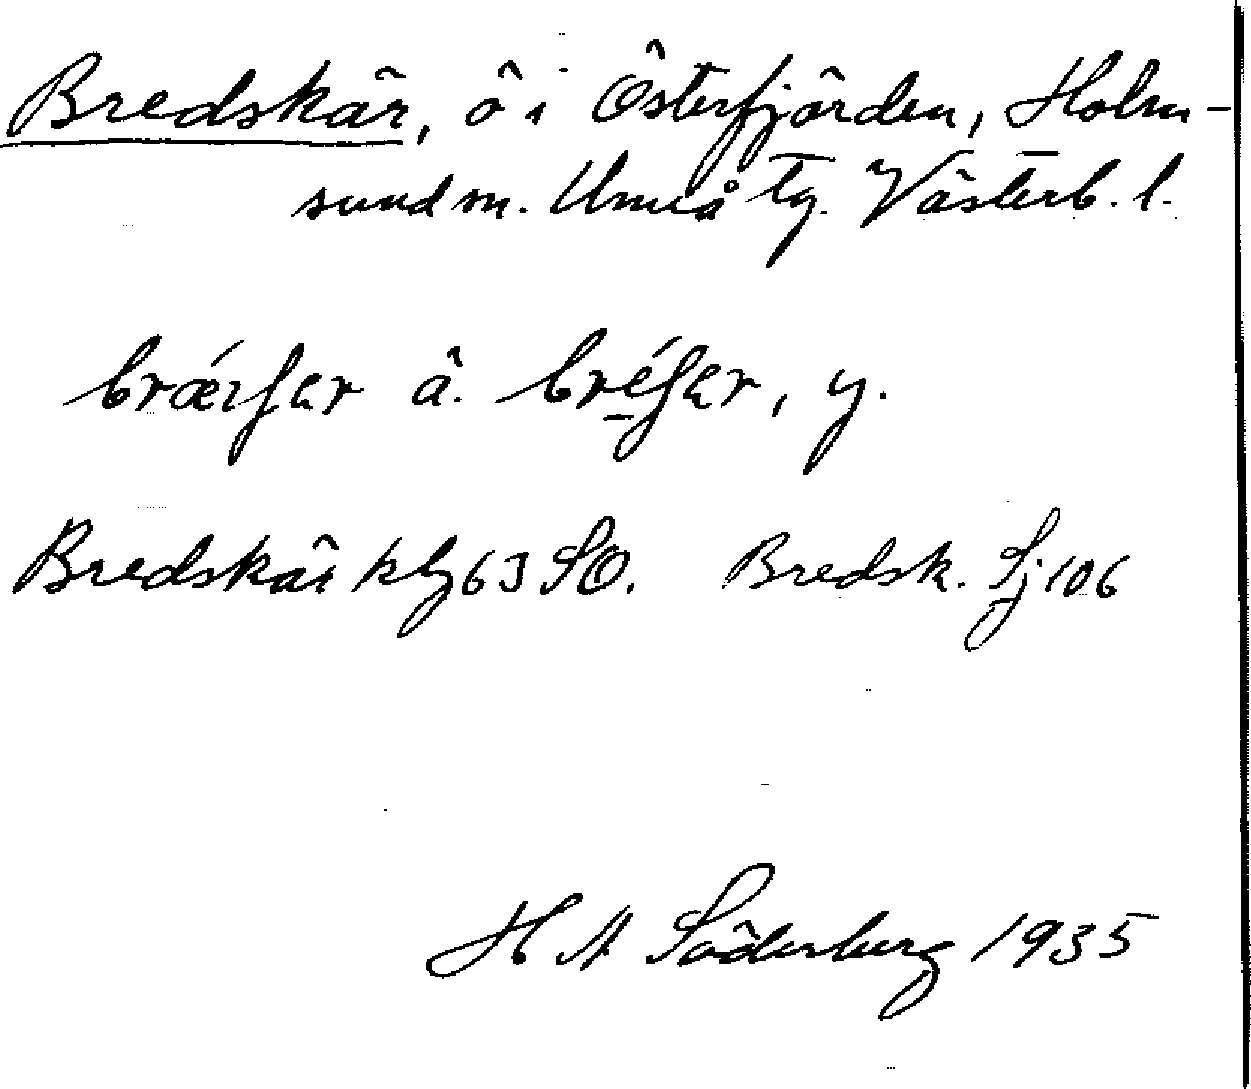 Bredskär, ö i Österfjärden, Holm-
sund sn. Umeå tg. Västerb. l.
bræ´ɪʃɛr å. bre̱´ʃɛr, y.
Bredskär kbg 63 SO. Bredsk. Sj. 106
H A Söderberg 1935